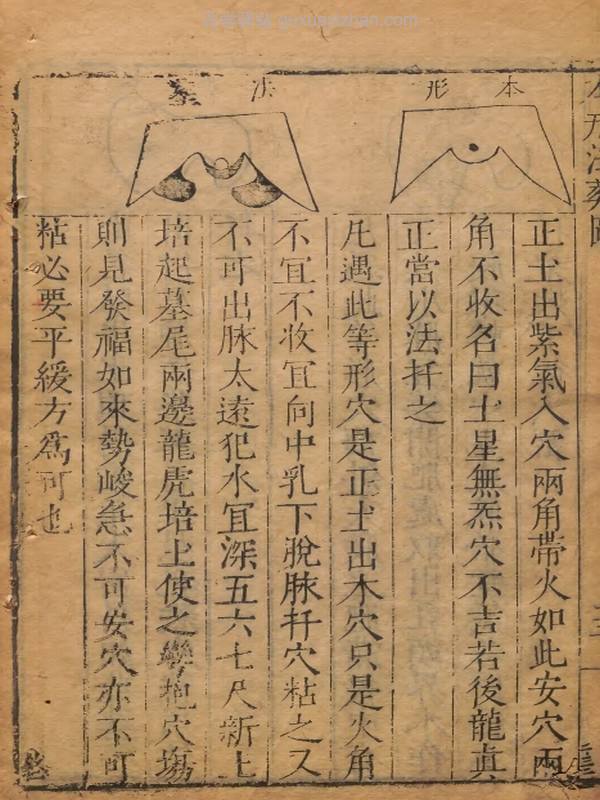 本形
正土出紫氣入穴兩角帶火如此安穴兩
角不收名曰土星無炁穴不吉若後龍真
正當以法扦之
法葬
凡遇此等形穴是正土出木穴只是火角
不宜不收宜向中乳下脫脉扦穴粘之又
不可出脉太遠犯水宜深五六七尺新土
培起墓尾兩邊龍虎培土使之彎抱穴塲
則見發福如來勢峻急不可安穴亦不可
粘必要平緩方為可也